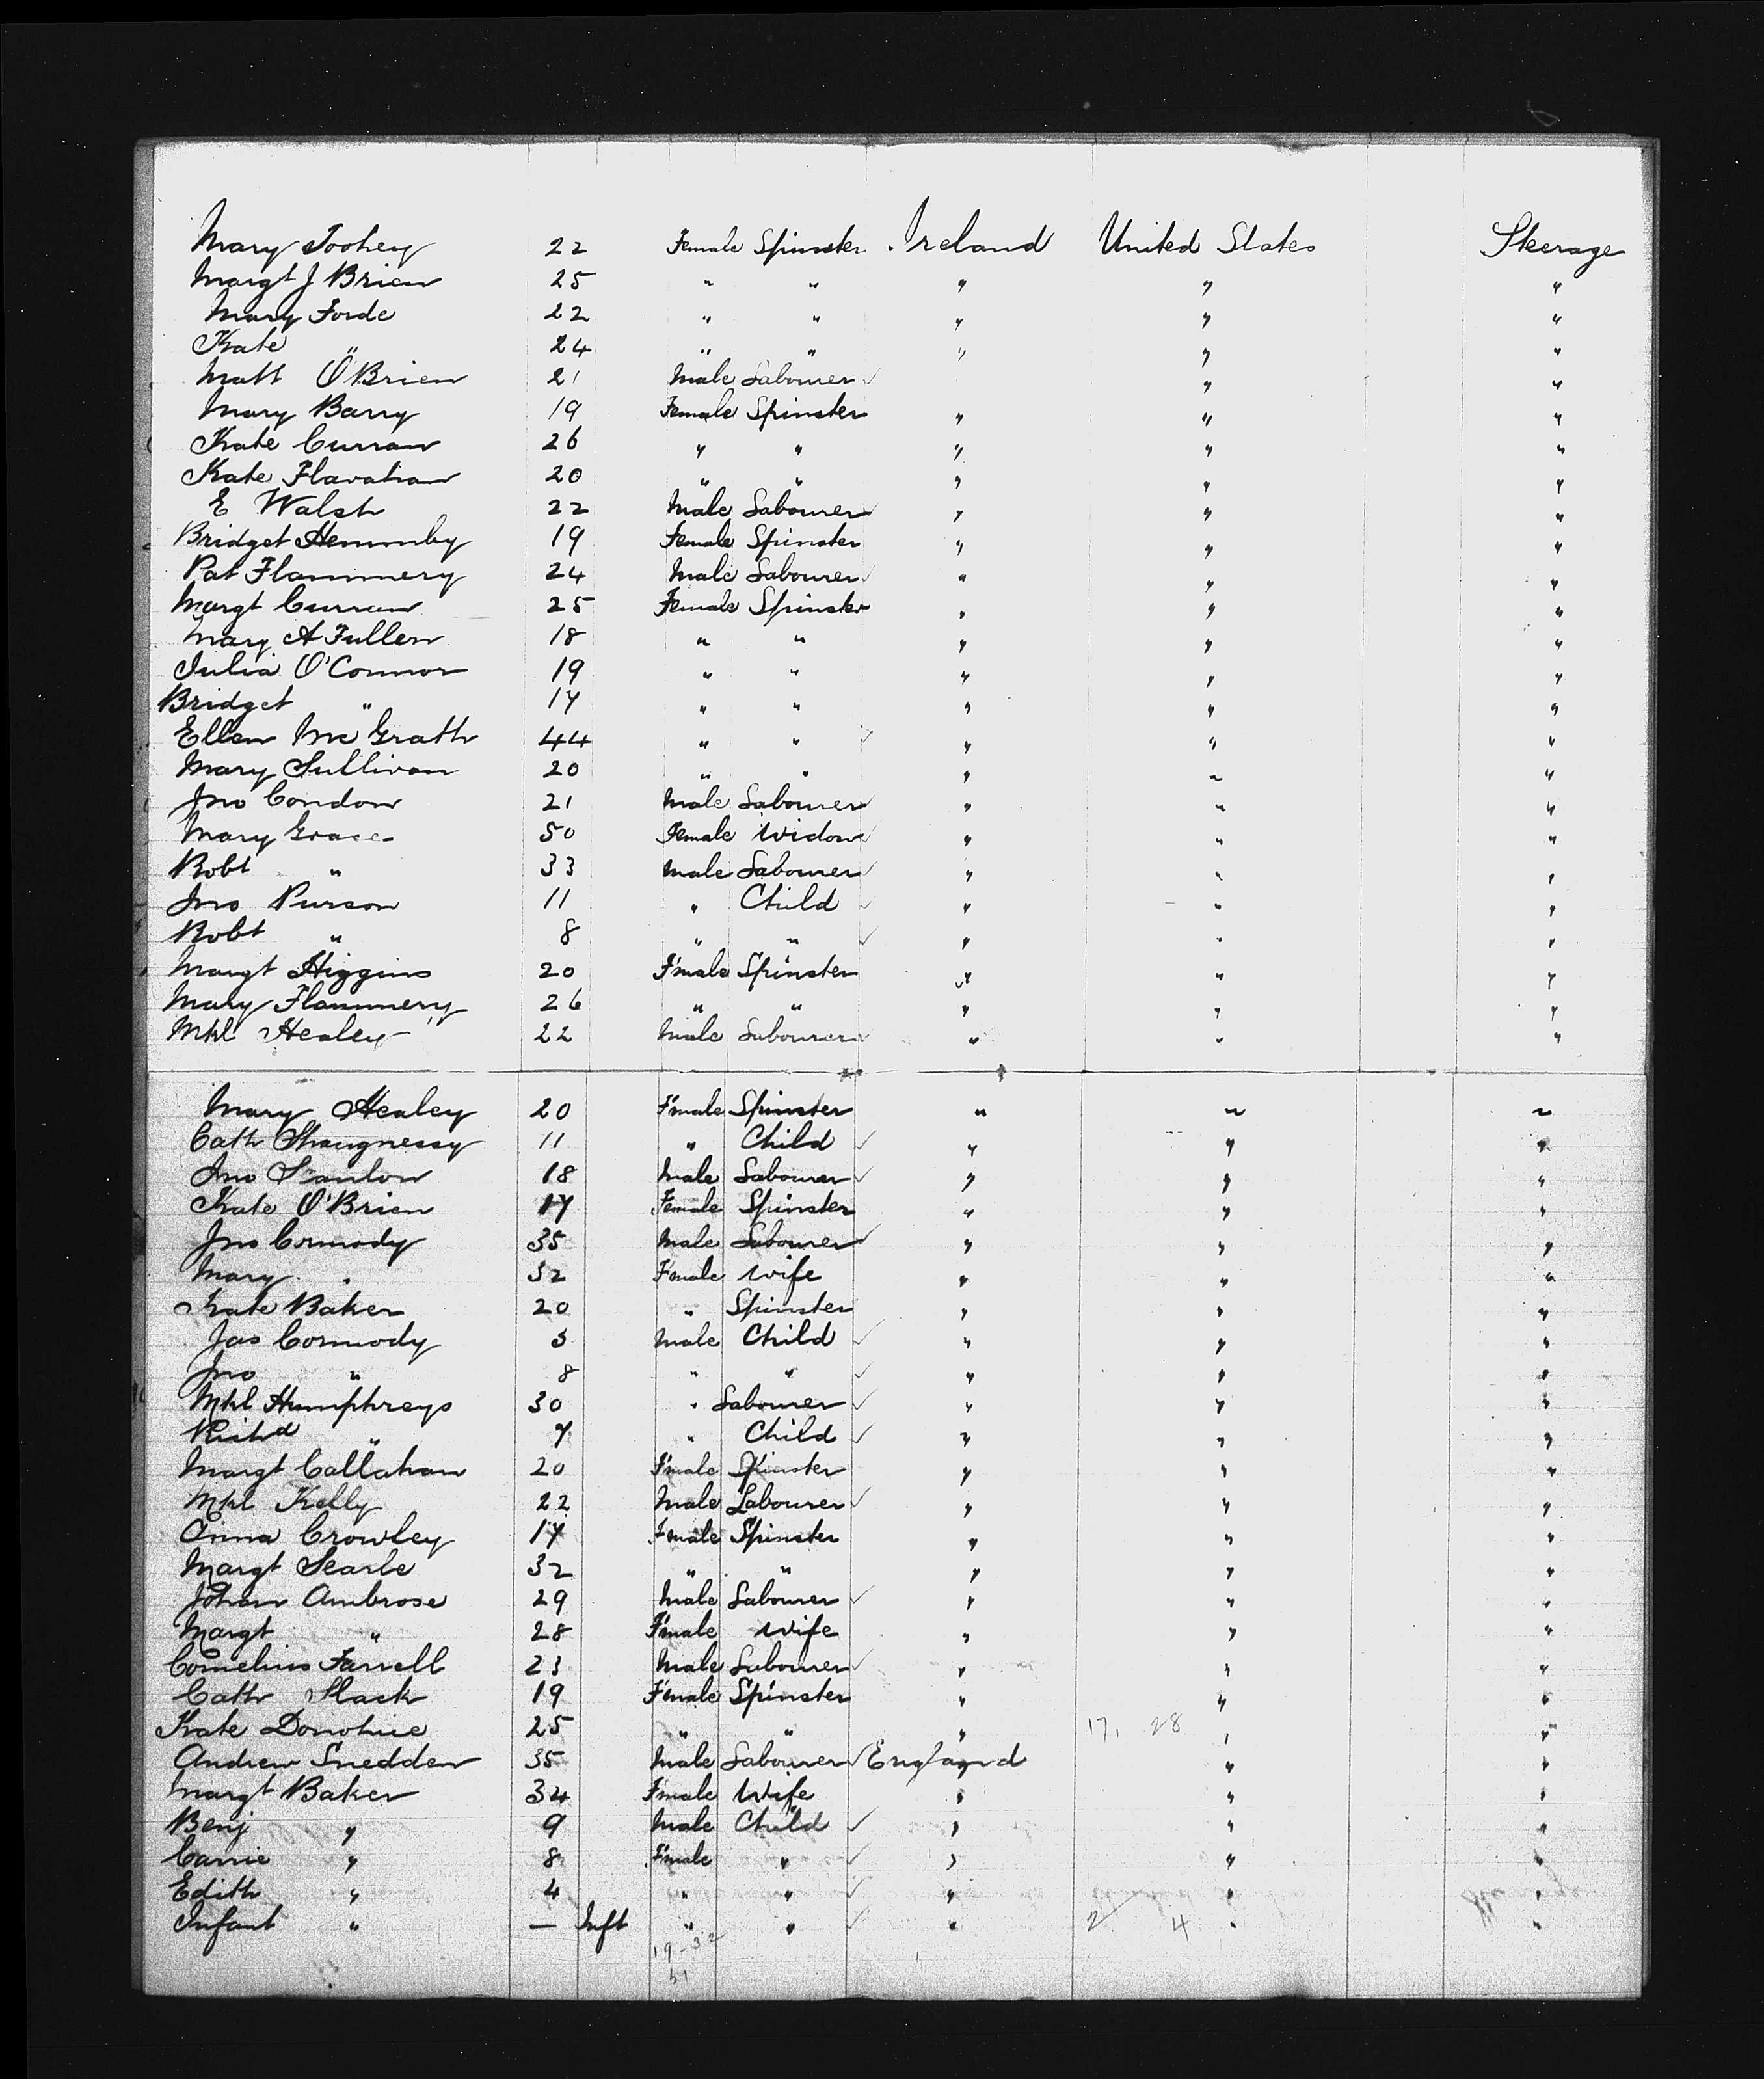 Mary Toohey 22 Female Spinster Ireland United States Steerage
Margt J Brien 25 " " " " "
Mary Forde 22 " " " " "
Kate " 24 " " " " "
Matt O'Brien 21 Male Labourer " "
Mary Barry 19 Female Spinster " " "
Kate Curran 26 " " " " "
Kate Flavahan 20 " " " " "
E Walsh 22 Male Labourer " " "
Bridget 19 Female Spinster " " "
Pat Flannnery 24 Male Labourer " " "
Margt Curran 25 Female Spinster " " "
Mary A Fullen 18 " " " " "
Julia O'Connor 19 " " " " "
Bridget " 17 " " " " "
Ellen McGrath 44 " " " " "
Mary Sullivan 20 " " " " "
Jno Condon 21 Male Labourer " " "
Mary Grace 50 Female Widow " " "
Robt " 33 Male Labourer " " "
Jno Purson 11 " Child " " "
Robt " 8 " " " " "
Margt Higgins 20 F'male Spinster " " "
Mary Flannnery 26 " " " " "
Mkl Healey 22 Male Labourer " " "
Mary Healey 20 F'male Spinster " " "
Cath Shaugnessy 11 " Child " " "
Jno Scanlon 18 Male Labourer " " "
Kate O'Brien 17 Female Spinster " " "
Jno Cormody 35 Male Labourer " " "
Mary " 32 F'male Wife " " "
Kate Baker 20 " Spinster " " "
Jas Cormody 3 Male Child " " "
Jno " 8 " " " " "
Mkl Humphreys 30 " Labourer " " "
Richd " 7 " Child " " "
Margt Callahan 20 F'male Spinster " " "
Mkl Kelly 22 Male Labourer " " "
Anna Crowley 17 F'male Spinster " " "
Margt Searle 32 " " " " "
Johan Ambrose 29 Male Labourer " " "
Margt " 28 F'male Wife " " "
Cornelius Farrell 23 Male Labourer " " "
Cath Slack 19 F'male Spinster " " "
Kate Donohue 25 " " " 17, 28 " "
Andrew Snedden 35 Male Labourer England " "
Margt Baker 34 F'male Wife " " "
Benj " 9 Male Child " " "
Carrie " 8 F'male " " " "
Edith " 4 " " " " "
Infant " — Inft " " " 2 4 " "
19-32
51